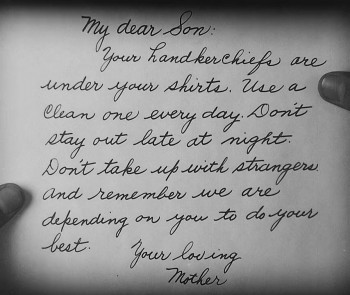 My dear Son:
Your handkerchiefs are
under your shirts. Use a
clean one every day. Don't
stay out late at night.
Don't take up with strangers
and remember we are
depending on you to do your
best.
Your loving
Mother